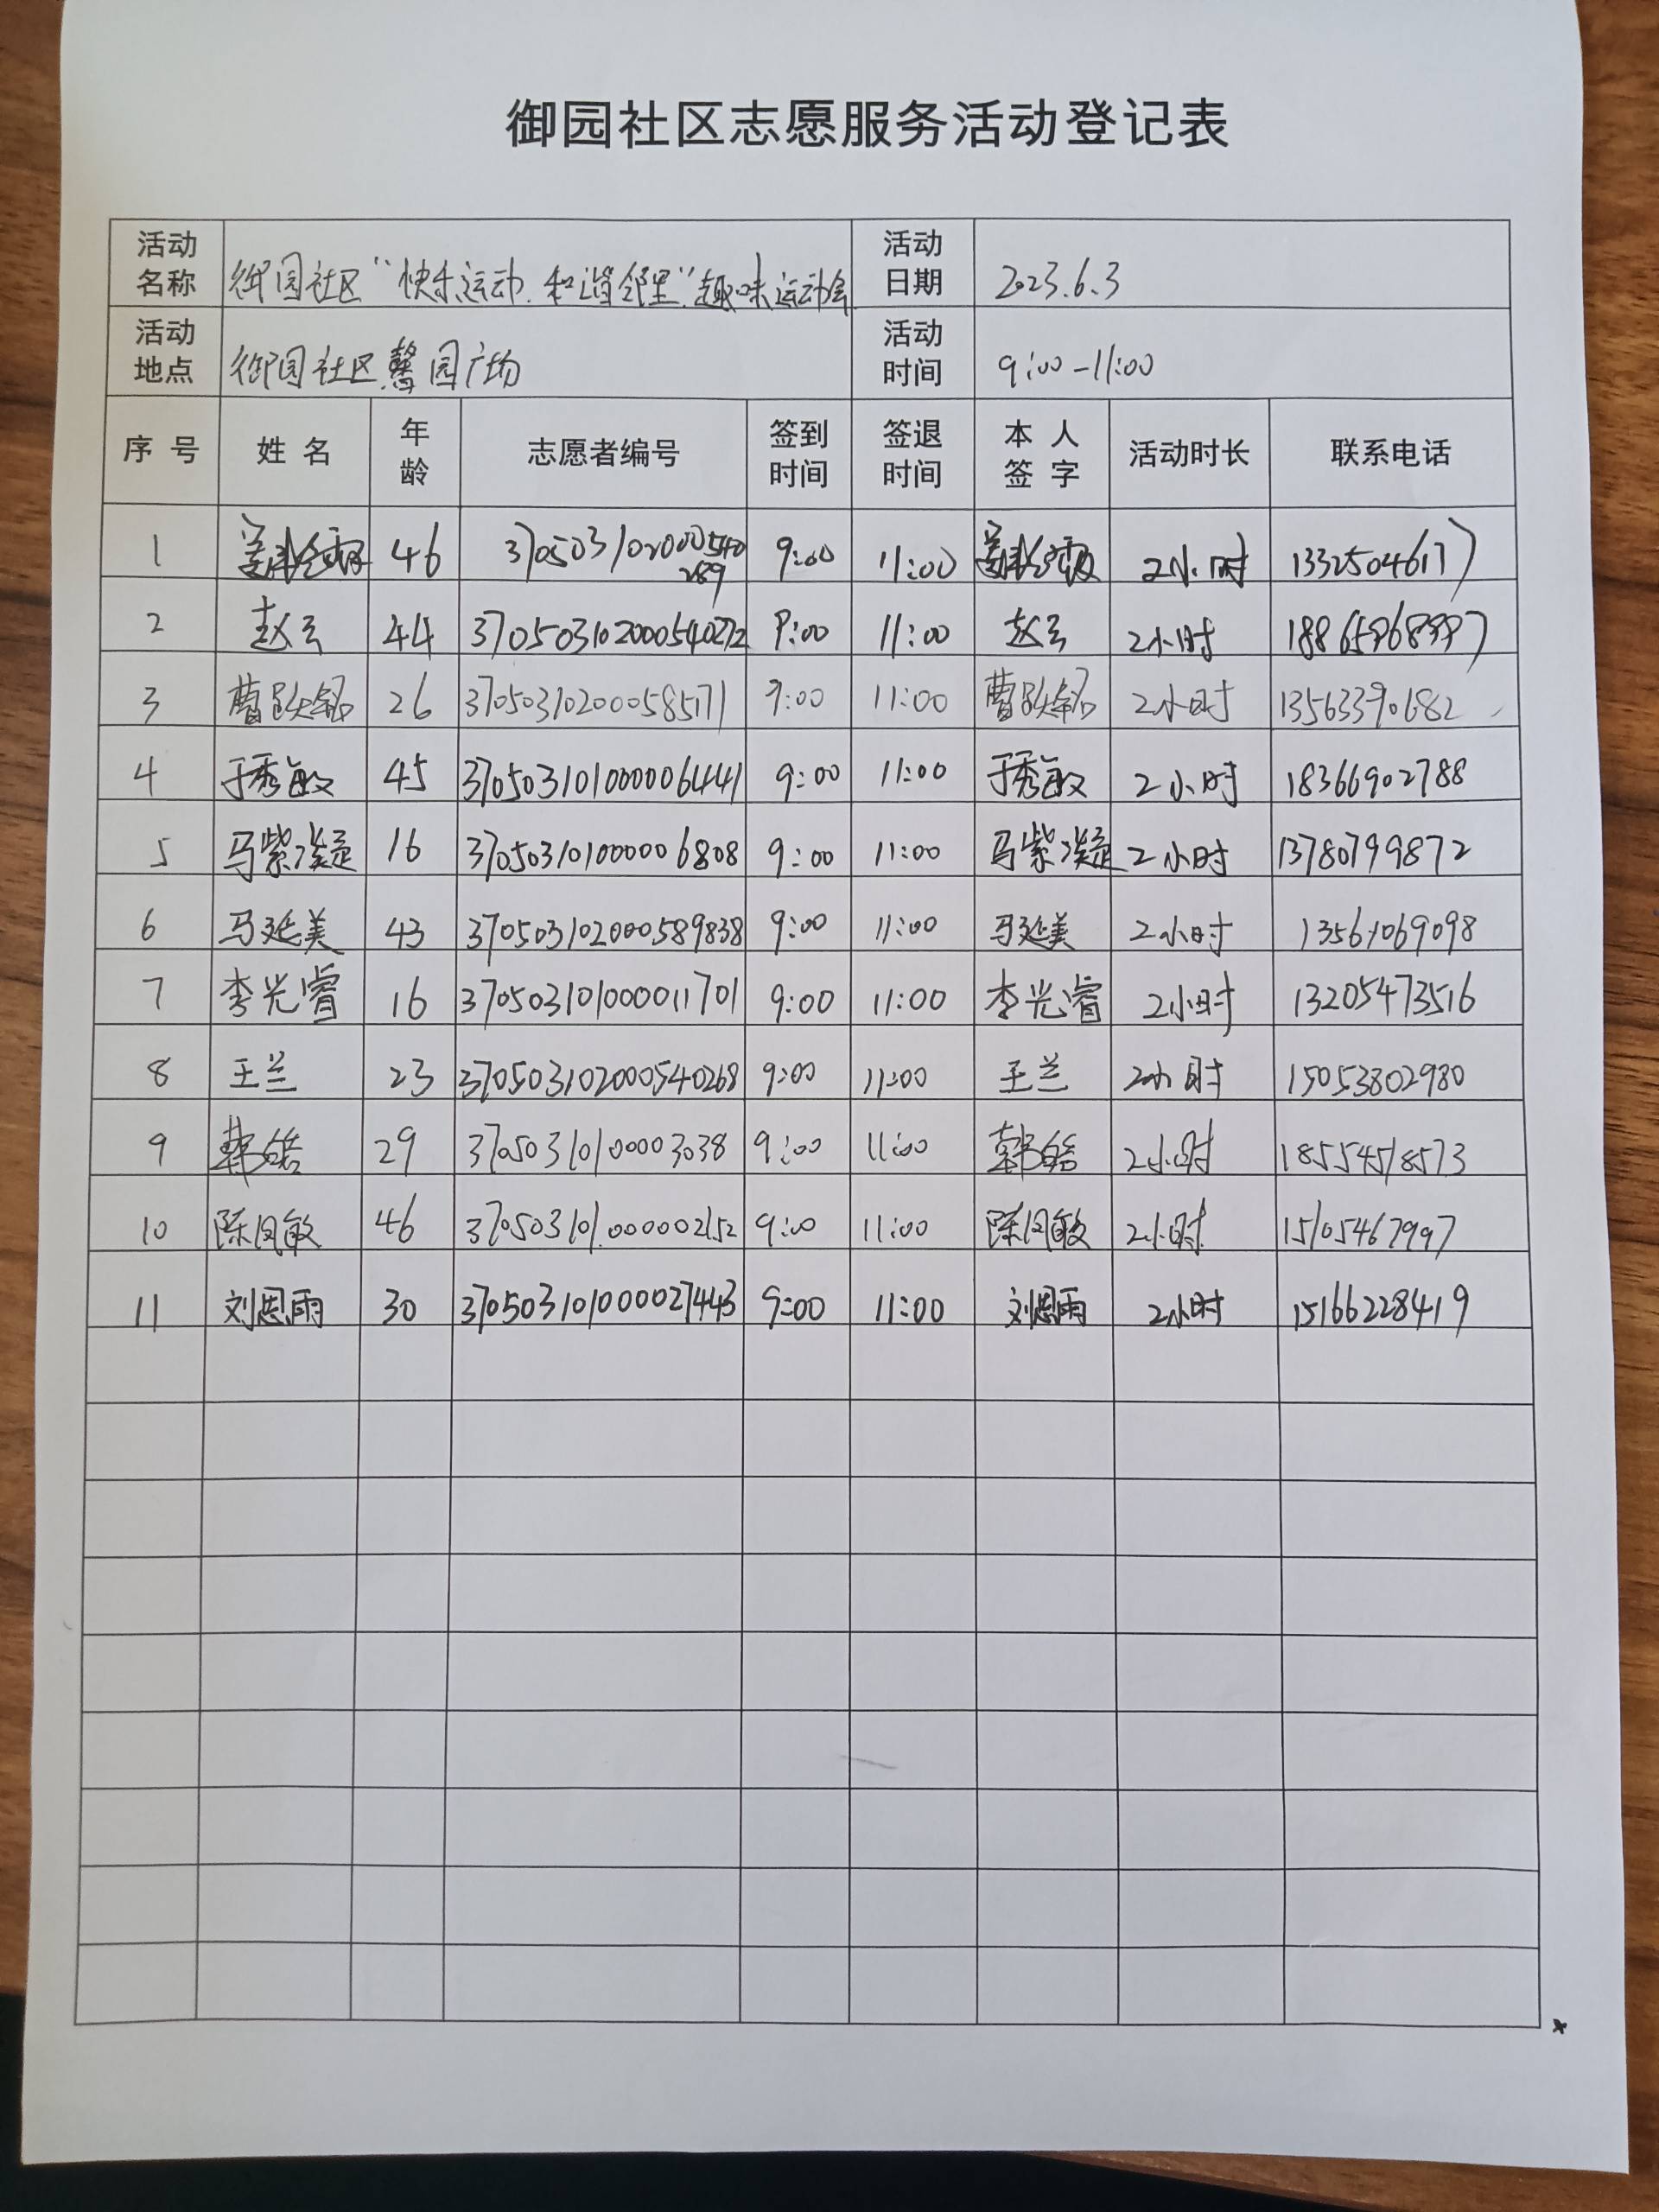 御园社区志愿服务活动登记表
活动名称 御园社区“快乐运动.和谐邻里”趣味运动会 活动日期 2023.6.3
活动地点 御园社区馨园广场 活动时间 9:00-11:00
序号 姓名 年龄 志愿者编号 签到时间 签退时间 本人签字 活动时长 联系电话
1 46 370503102000540289 9:00 11:00 2小时 13325046177
2 赵云 44 370503102000540272 9:00 11:00 赵云 2小时
3 曹 26 370503102000585171 9:00 11:00 曹 2小时 13563390682
4 于秀敏 45 370503101000006441 9:00 11:00 于秀敏 2小时 18366902788
5 马紫凝 16 370503101000006808 9:00 11:00 马紫凝 2小时 13780799872
6 马延美 43 370503102000589838 9:00 11:00 马延美 2小时 13561069098
7 李光睿 16 370503101000011701 9:00 11:00 李光睿 2小时 13205473516
8 王兰 23 370503102000540268 9:00 11:00 王兰 2小时 15053802980
9 韩皓 29 37050310100003038 9:00 11:00 韩皓 2小时 18554518573
10 陈凤敏 46 370503101000002152 9:00 11:00 陈凤敏 2小时 15105467997
11 刘恩雨 30 370503101000027443 9:00 11:00 刘恩雨 2小时 15166228419